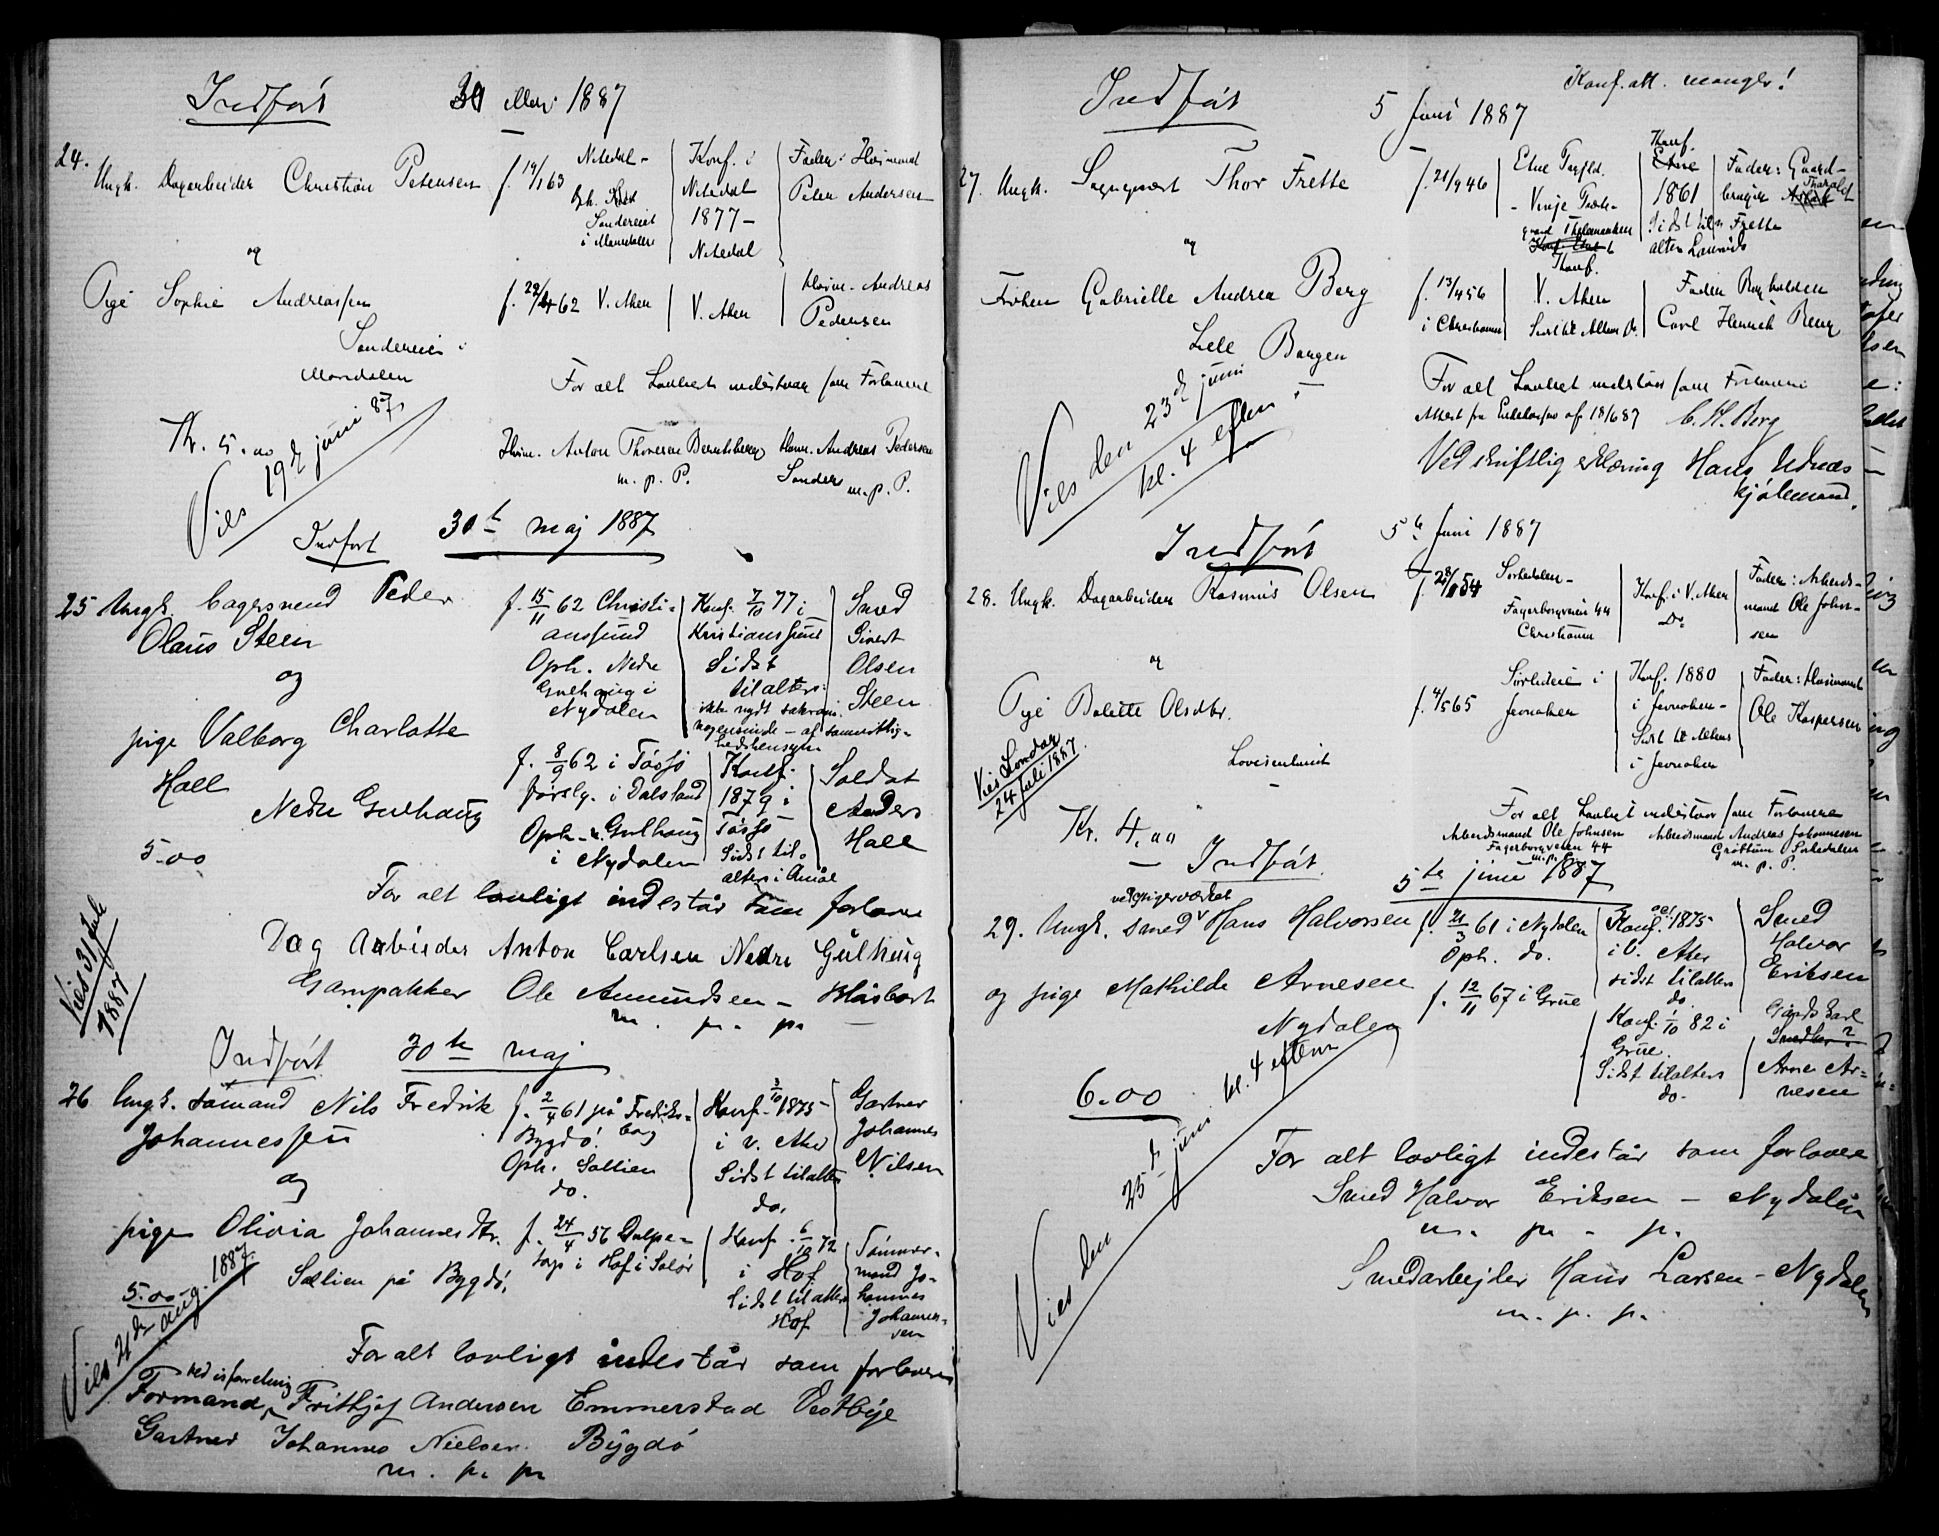 Indført 30 Mai 1887
24. Ungk. Dagarbeider Christian Petersen f. 19/1 63
Nitedal –
Sandereiet
i Maridalen
Konf. i
Nitedal
1877 –
Nitedal
Fader: Husmand
Peter Andersen
og
Pige Sophie Andreassen f. 22/4 62 V. Aker V. Aker
Husm. Andreas
Pedersen
Sandereiet i
Maridalen
For alt Lovlicht indestaar som Forlovere
Kr. 5.00
Husm. Anton Thoresen Berntsberg Husm. Andreas Pedersen
m. p. P. Sander m. p. P.
Vies 19de juni 87
Indført 30te maj 1887
25 Ungk. Bagersvend Peder
Olaus Steen
f. 15/11 62 Christi-
anssund
Oph. Nedre
Gulhaug i
Nydalen
Konf. 7/10 77 i
Kristianssund
Sidst
til alters:
ikke nydt sakram.
nogensinde – af samvittig-
hedshensyn
Smed
Sivert
Olsen
Steen
og
pige Valborg Charlotte
Hall
Nedre Gulhaug
f. 8/9 62 i Tøssø
i Dalsland
Oph. n. Gulhaug
i Nydalen
Konf.
1879 i
Tøssø
Sidst til-
alters i Amål
Soldat
Anders
Hall
5.00
For alt lovligt indestår som forlovere
Dag Arbeider Anton Carlsen Nedre Gulhaug
Garnpakker Ole Amundsen –
m. p. p.
Vies 31 Juli
1887
Indført 30te maj
26 Ungk. sømand Nils Fredrik
Johannessen
f. 2/4 61 på Fredriks-
borg
Bygdø.
Oph. Sollien
do.
Konf. 3/10 1875
i V. Aker
Sidst til alters
do.
Gartner
Johannes
Nilsen
og
pige Olivia Johannesdtr.
f. 24/4 56
i Hof i Solør
Konf. 6/10 72
i Hof
Sidst til alters
Hof
Tømmer-
mand Jo-
hannes
Johannes-
sen
Sollien på Bygdø.
5.00
Vies 21de aug. 1887.
For alt lovligt indestår som forlovere
Formand Frithjof Andersen Emmerstad Vestbye
Gartner Johannes Nielsen. Bygdø
m. p. p.
Konf. att. mangler!
Indført 5 Juni 1887
27. Ungk. Sagn. Thor Frette f. 21/9 46
Vinje
Thelemarken
Konf.
1861
Sidst til
alters
Fader: Gaard-
bruger Tharald
Frette
og
Frøken Gabrielle Andrea Berg f. 13/4 56
i Christiania
V. Aker
Fader
Carl Henrik Berg
Lille Borgen
Vies den 23de juni
kl. 4 eftm.
For alt Lovlicht indestaar som Forlovere
C. H. Berg
Ved skriftlig erklæring Hans
Indført 5te Juni 1887
28. Ungk. Dagarbeider Rasmus Olsen
Sørkedalen –
Fagerborgveien 44
Christiania
Konf. i V. Aker
Do
Fader: Arbeids-
mand Ole John-
sen
og
Pige Bolette Olsdtr. f. 4/5 65
i
Jevnaker
Konf. 1880
i Jevnaker –
Sidst til Alters
i Jevnaker
Fader: Husmand
Ole Kaspersen
Lovisenlund
Vies Søndag
24 Juli 1887.
Kr. 4.00
For alt Lovlicht indestaar som Forlovere
Arbeidsmand Ole Johnsen
Fagerborgveien 44
Arbeidsmand Andreas Johannesen
Sørkedalen
m. p. P.
Indført. 5te juni 1887
29. Ungk. smed Hans Halvorsen
ved Spigerverket
f. 21/3 61 i Nydalen
Oph. do.
Konf. oct. 1875
i V. Aker
sidst til alters
do.
Smed
Halvor
Eriksen
og pige Mathilde Arnesen
Nydalen
f. 12/11 67 i Grue
Konf. 1/10 82 i
Grue.
Sidst til alters
do.
Arne Ar-
nesen
6.00
Vies den 25de juni kl. 4 eftm
For alt lovligt indestår som forlovere
Smed Halvor Eriksen – Nydalen
m. p. p.
Smedarbejder Hans Larsen – Nydalen
m. p. p.